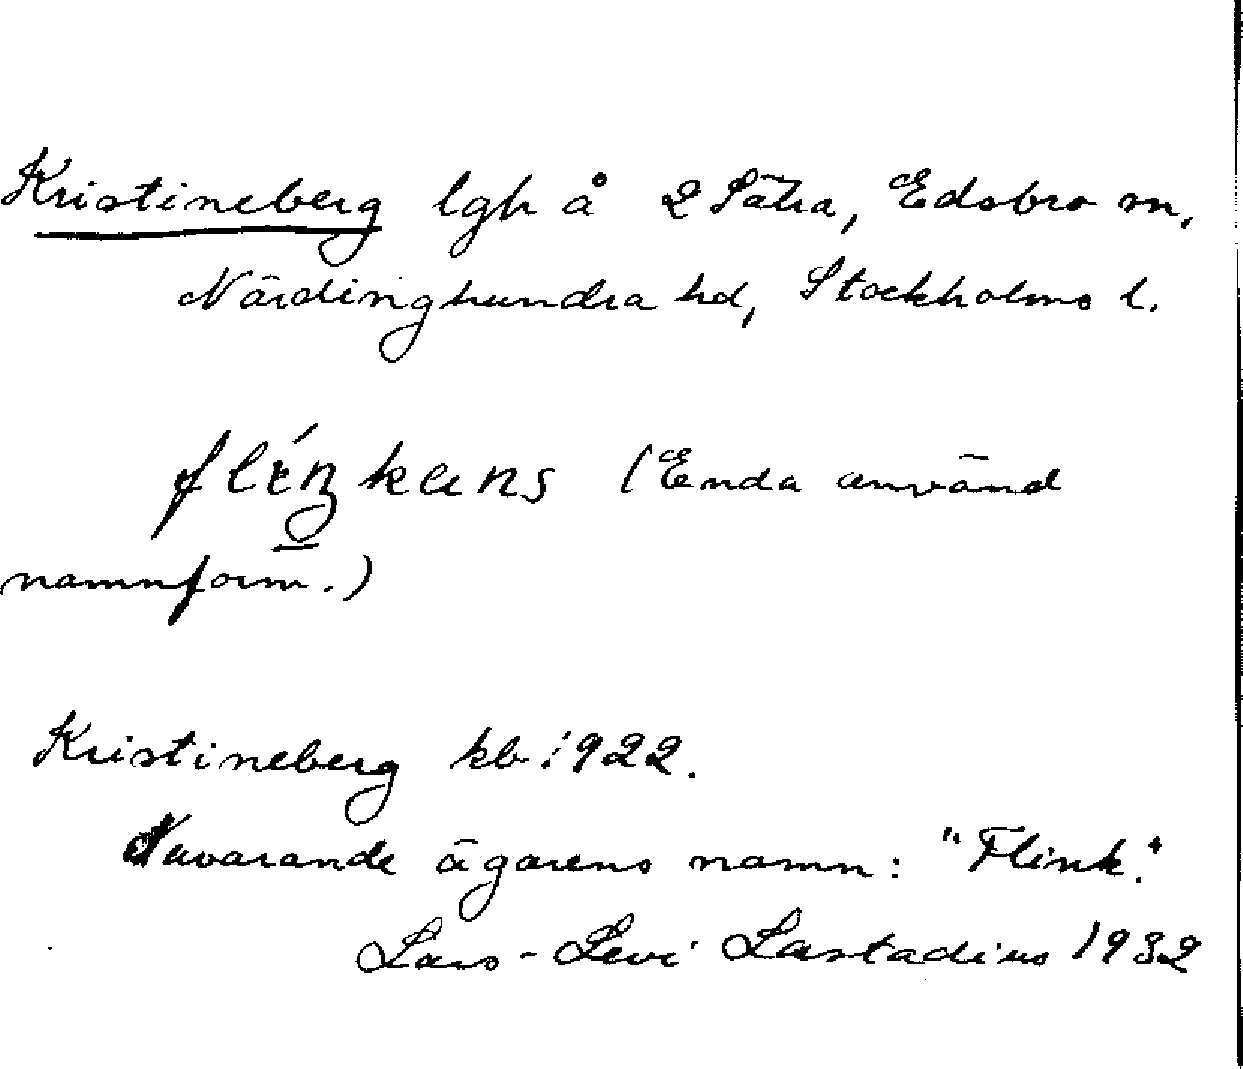 Kristineberg lgh å 2 Sätra, Edsbro sn,
Närdinghundra hd, Stockholms l.
flíŋkans (Enda använd
namnform.)
Kristineberg kb. 1922.
Nuvarande ägarens namn: "Flink."
Lars-Levi Læstadius 1932